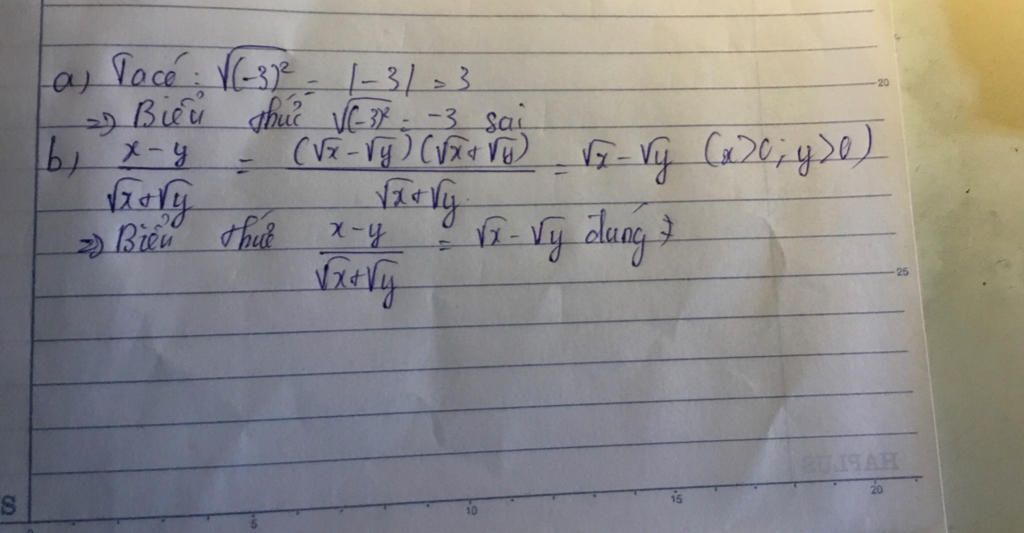 a) Ta có : √(-3)² = |-3| = 3
=> Biểu thức √(-3)² = -3 sai
b) (x-y)/(√x+√y) = (√x-√y)(√x+√y)/(√x+√y) = √x-√y (x>0; y>0)
=> Biểu thức (x-y)/(√x+√y) = √x-√y đúng
20
25
HAPLUS
S
5 10 15 20